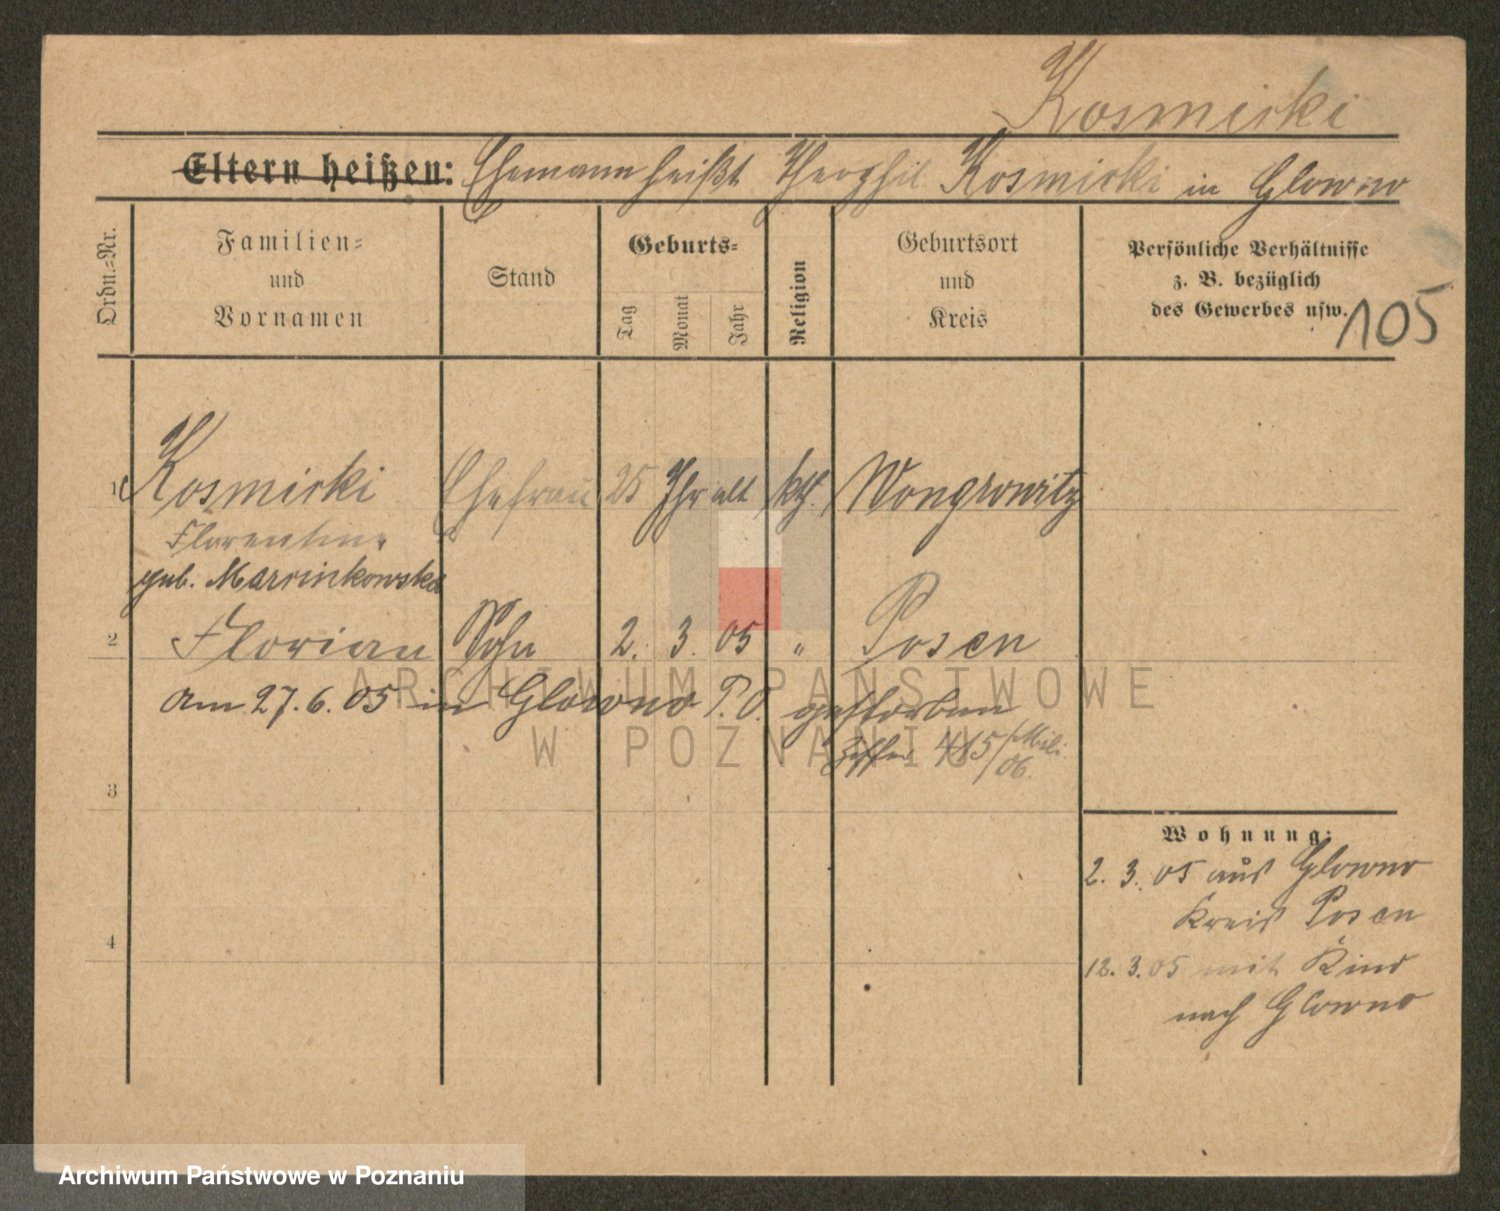 Kosmicki
Eltern heißen: Ehemann heißt Theophil Kosmicki in Glowno
Ordn.-Nr.
Familien-
und
Vornamen
Stand
Geburts-
Tag
Monat
Jahr
Religion
Geburtsort
und
Kreis
Persönliche Verhältnisse
z. B. bezüglich
des Gewerbes usw.
105
1 Kosmicki Ehefrau 25 Jhr alt kth. Wongrowitz
Florentine
geb. Marcinkowska
2 Florian Sohn 2. 3. 05 " Posen
am 27. 6. 05 in Glowno P.O. gestorben
415/Mili 06.
3
4
Wohnung:
2. 3. 05 aus Glowno
Kreis Posen
12. 3. 05 mit Kind
nach Glowno
ARCHIWUM PAŃSTWOWE
W POZNANIU
Archiwum Państwowe w Poznaniu